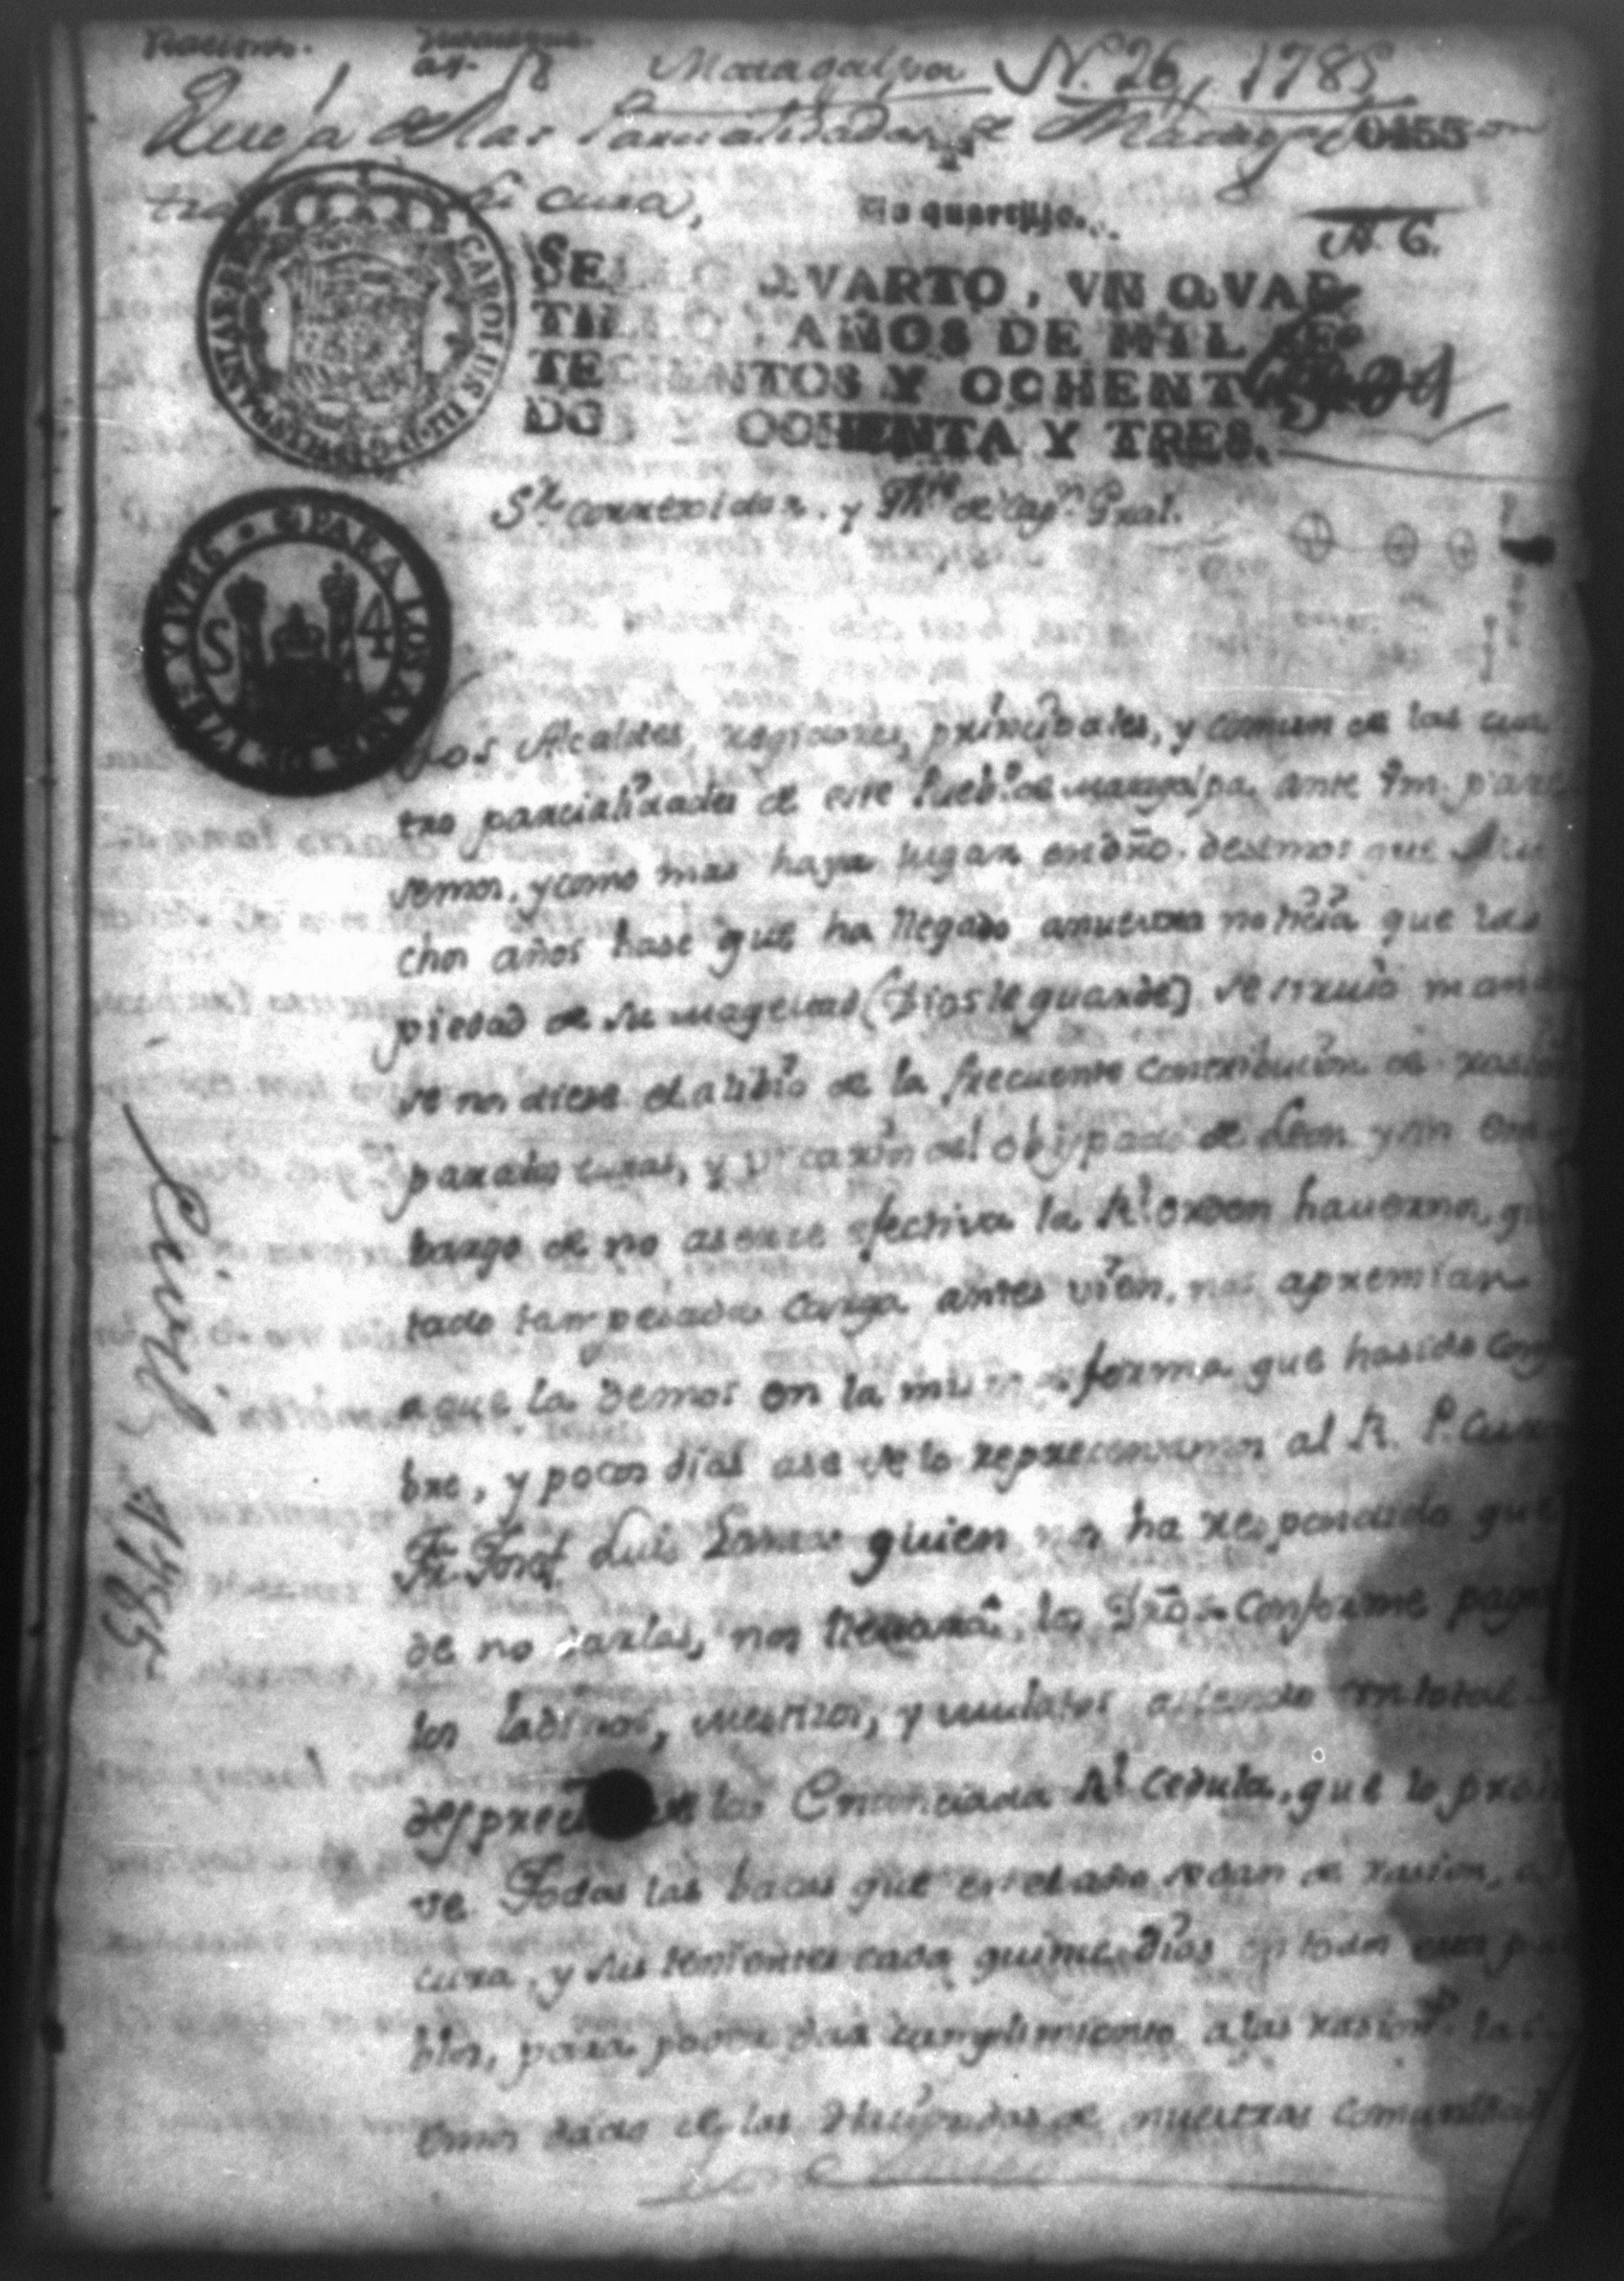 Matagalpa N. 26, 1785
Queja de las Parcialidades de Matagalpa con
tra su cura,
0455
Un quartillo.
A. G.
SELLO QVARTO, VN QVAR
TILLO, AÑOS DE MIL SE
TECIENTOS Y OCHENTA Y
DOS Y OCHENTA Y TRES.
CAROLUS III
PARA LOS AÑOS DE 1785 Y 1786
S 4
Sr. correxidor. y Thte de Capn. Gral.
Los Alcaldes, regidores, principales, y comun de las cua
tro parcialidades de este Pueblo de matagalpa ante Vm. pare
semos, y como mas haya lugar en dro. desimos que Mu
chos años hase que ha llegado a nuestra noticia que la
piedad de su magestad (Dios le guarde) se sirvio man
se nos diese el alibio de la frecuente contribucion de rasion
para los curas, y vicarios del obispado de Leon y sin em
bargo de no aserse efectiva la Rl. orden havernos, qui
tado tan pesada carga antes vien, nos apremian
a que la demos en la misma forma que ha sido costu
bre, y pocos dias ase se lo representamos al R. P. Cura
Fr. Josef Luis quien nos ha respondido que
de no darlas, nos llevará, los Dros. conforme pagan
los ladinos, mestizos, y mulatos asiendo con total
desprecio de la Enunciada Rl. Cedula, que lo proh
ve. Todas las bacas que en el año se dan de rasion, al
cura, y sus tenientes cada quinse dias en todos estos pue
blos, para poder dar cumplimiento a las rasiones las
emos dado de las Haciendas de nuestras comunidad
Quinl.
1785